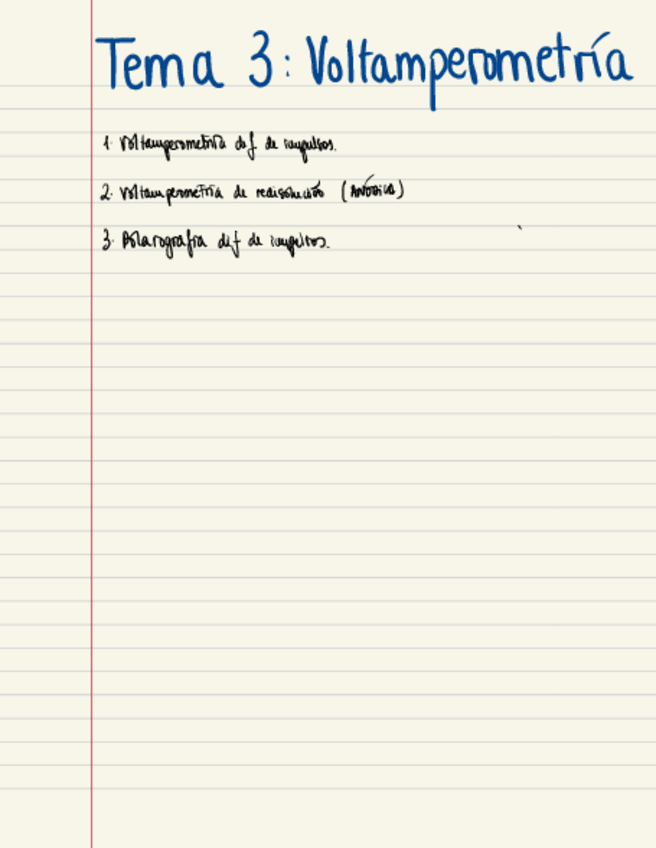 Tema 3: Voltamperometría
1. Voltamperometría dif de impulsos.
2. Voltamperometría de redisolución (ANÓDICA)
3. Polarografía dif de impulsos.